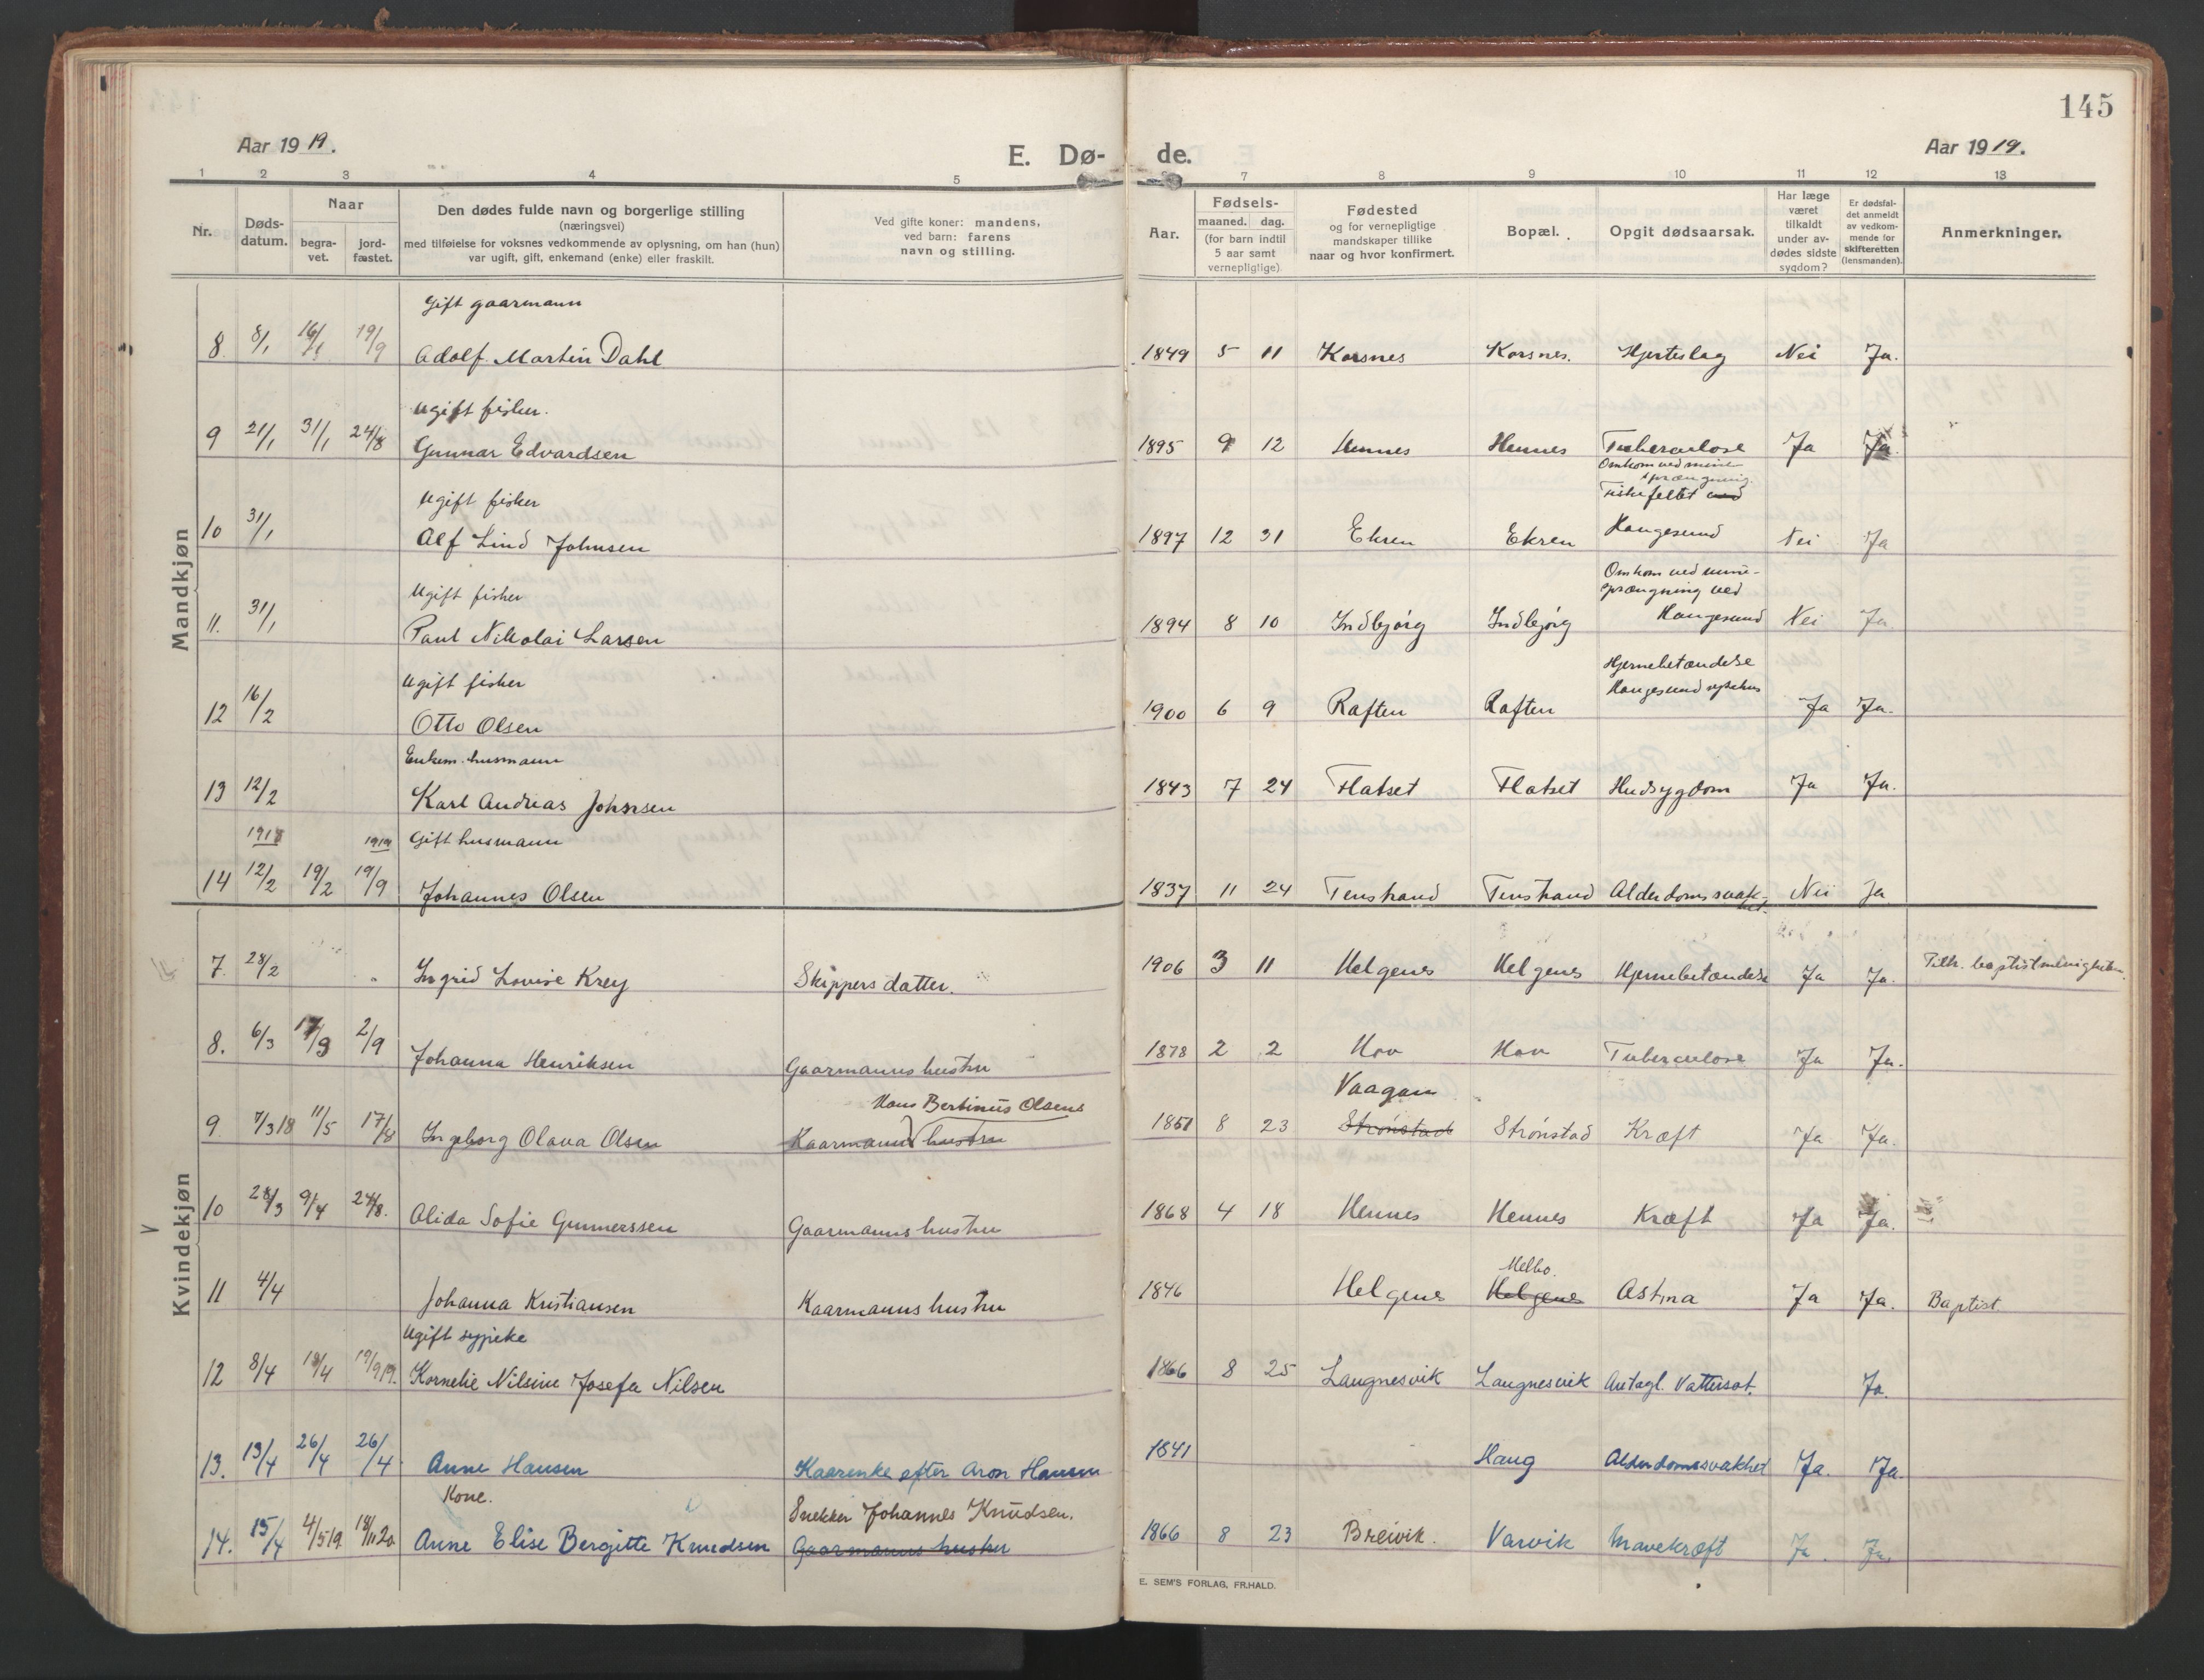 145
Aar 1919.
E. Dø- de.
Aar 1919.
1 2 3 4 5 7 8 9 10 11 12 13
Nr.
Døds-
datum.
Naar
begra-
vet.
jord-
fæstet.
Den dødes fulde navn og borgerlige stilling
(næringsvei)
med tilføielse for voksnes vedkommende av oplysning, om han (hun)
var ugift, gift, enkemand (enke) eller fraskilt.
Ved gifte koner: mandens,
ved barn: farens
navn og stilling.
Aar.
Fødsels-
maaned. dag.
(for barn indtil
5 aar samt
vernepligtige)
Fødested
og for vernepligtige
mandskaper tillike
naar og hvor konfirmert.
Bopæl.
Opgit dødsaarsak.
Har læge
været
tilkaldt
under av-
dødes sidste
sygdom?
Er dødsfal-
det anmeldt
av vedkom-
mende for
skifteretten
(lensmanden).
Anmerkninger.
Mandkjøn
Gift gaarmann
8. 8/1 19/9 Adolf Martin Dahl 1849 5 11 Korsnes Korsnes. Hjerteslag Nei Ja.
Ugift fisker.
9 21/1 31/1 24/8 Gunnar Edvardsen 1895 9 12 Hennes Hennes Tuberculose Ja Ja.
Omkom ved mine-
sprængning
Ugift fisker Fiskefeltet ved
10 31/1 Alf Lind Johnsen 1897 12 31 Ekren Ekren Haugesund Nei Ja
Omkom ved mine-
Ugift fisker sprængning ved
11. 31/1 Paul Nikolai Larsen 1894 8 10 Indbjørg Indbjørg Haugesund Nei Ja
Hjernebetændelse
Ugift fisker Haugesund sykehus
12 16/2 Otto Olsen 1900 6 9 Raften Raften Ja Ja.
Enkem. husmann
13 12/2 Karl Andreas Johnsen 1843 7 24 Flatset Flatset Hudsygdom Ja Ja.
1918 1919 Gift husmann
14 12/2 19/2 19/9 Johannes Olsen 1837 11 24 Tenstrand Tenstrand Alderdomssvak-
het. Nei Ja
Kvindekjøn
7. 28/2 Ingrid Lovise Krey Skippers datter. 1906 3 11 Helgenes Helgenes Hjernebetændelse Ja Ja. Tilh. baptistmenigheten.
8. 6/3 17/3 2/9 Johanna Henriksen Gaarmanns hustru 1878 2 2 Hov Hov Tuberculose Ja Ja.
Hans Bertinus Olsens Vaagan
9 7/3 18 11/5 17/8 Ingeborg Olava Olsen Kaarmanns hustru 1851 8 23 Strønstad Strønstad Kræft Ja Ja.
10 28/3 9/4 24/8. Alida Sofie Gunnerssen Gaarmanns hustru 1868 4 18 Hennes Hennes Kræft Ja Ja.
Melbo.
11 4/4 Johanna Kristiansen Kaarmanns hustru 1846 Helgenes Helgenes Astma Ja Ja. Baptist.
Ugift sypike
12 8/4 18/4 19/9 19. Kornelie Nilsine Josefa Nilsen 1866 8 25 Langnesvik Langnesvik Antagl. Vattersot. Ja.
13. 13/4 26/4 26/4 Anne Hansen Kaarenke efter Aron Hansen 1841 Haug Alderdomssvakhet Ja. Ja.
Kone. Snekker Johannes Knudsen.
14. 15/4 4/5 19 18/11 20 Anne Elise Bergitte Knudsen Gaarmanns hustru 1866 8 23 Breivik. Varvik Mavekræft Ja. Ja.
E. SEM'S FORLAG, FR.HALD.